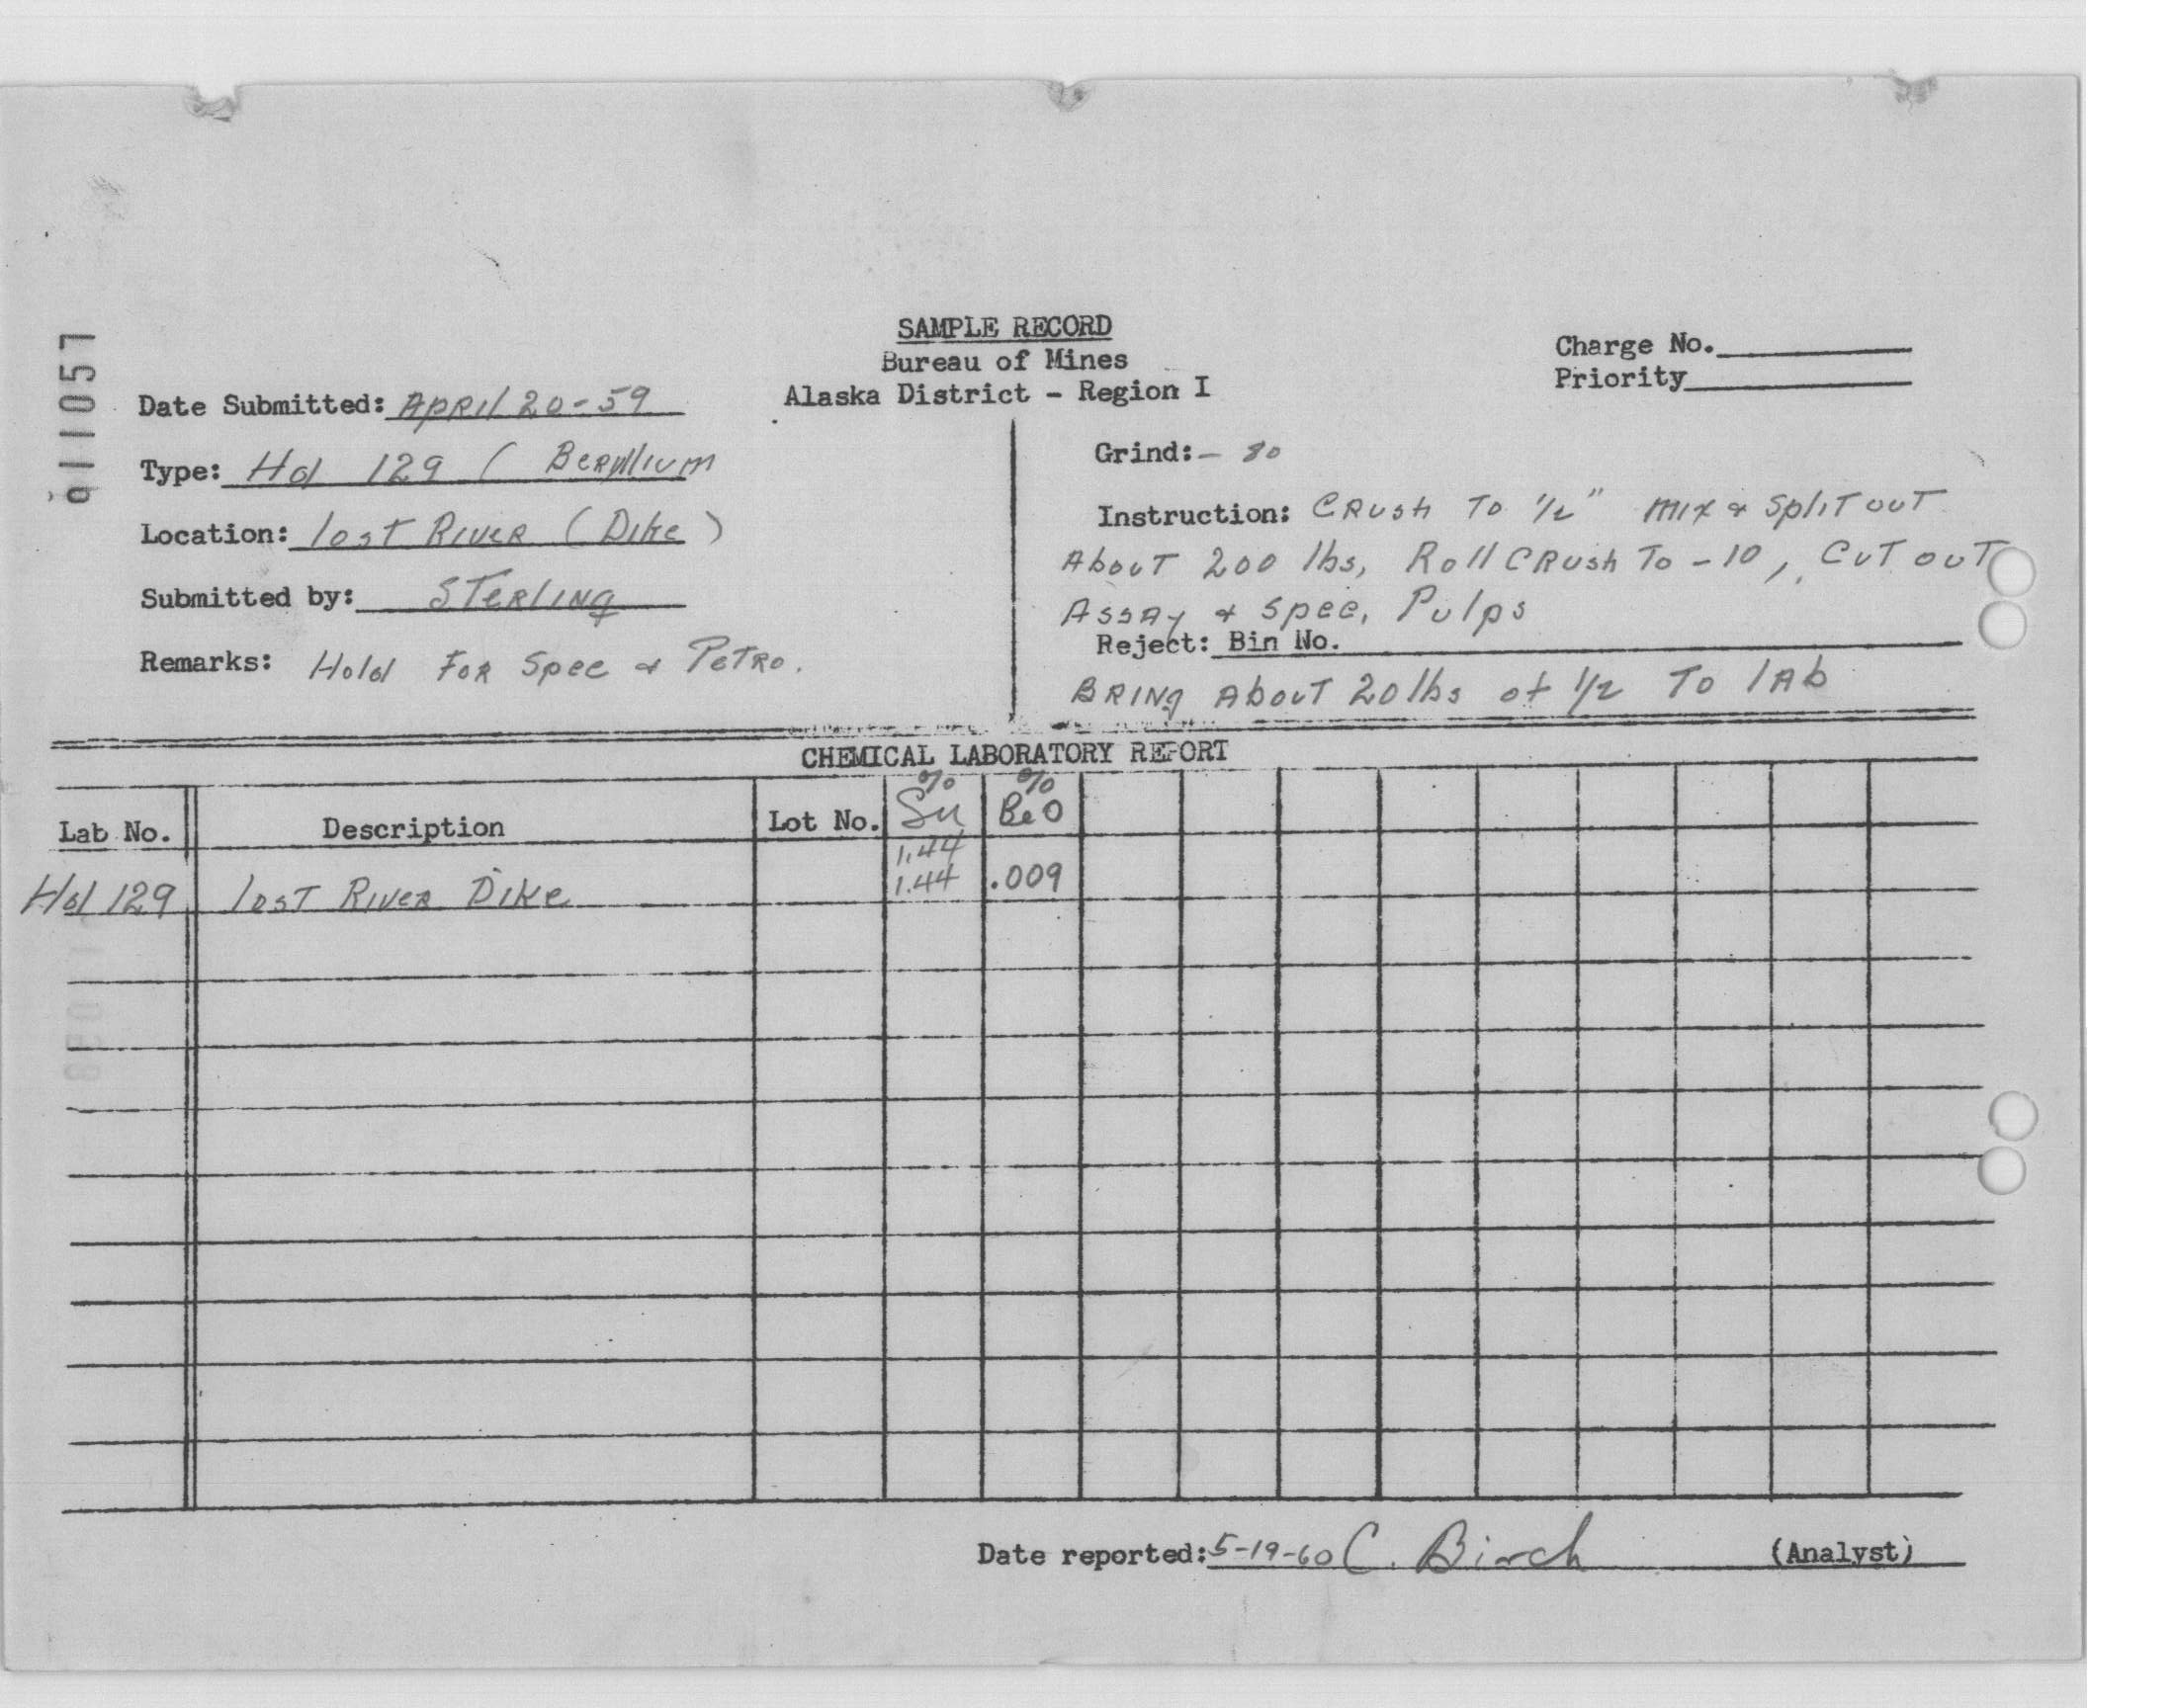 911057
SAMPLE RECORD
Bureau of Mines
Alaska District - Region I
Charge No.
Priority
Date Submitted: April 20-59
Type: Hd 129 ( Beryllium
Location: Lost River (Dike)
Submitted by: Sterling
Remarks: Hold For Spec & Petro.
Grind: - 80
Instruction: Crush To 1/2" mix & split out
About 200 lbs, Roll Crush To -10, Cut out
Assay & Spec. Pulps
Reject: Bin No.
Bring About 20 lbs of 1/2 To lab
CHEMICAL LABORATORY REPORT
Lab No. Description Lot No. % Sn % BeO
1.44
Hd 129 Lost River Dike 1.44 .009
Date reported: 5-19-60 C. Birch (Analyst)